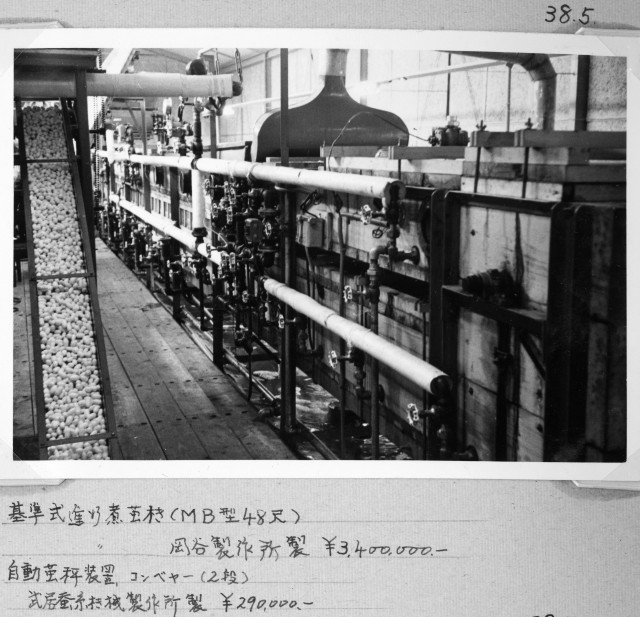 38.5.
基準式進行煮茧機(MB型48尺)
〃 岡谷製作所製 ¥3,400,000.-
自動茧秤装置、コンベヤー(2段)
武居蚕糸機械製作所製 ¥290,000.-